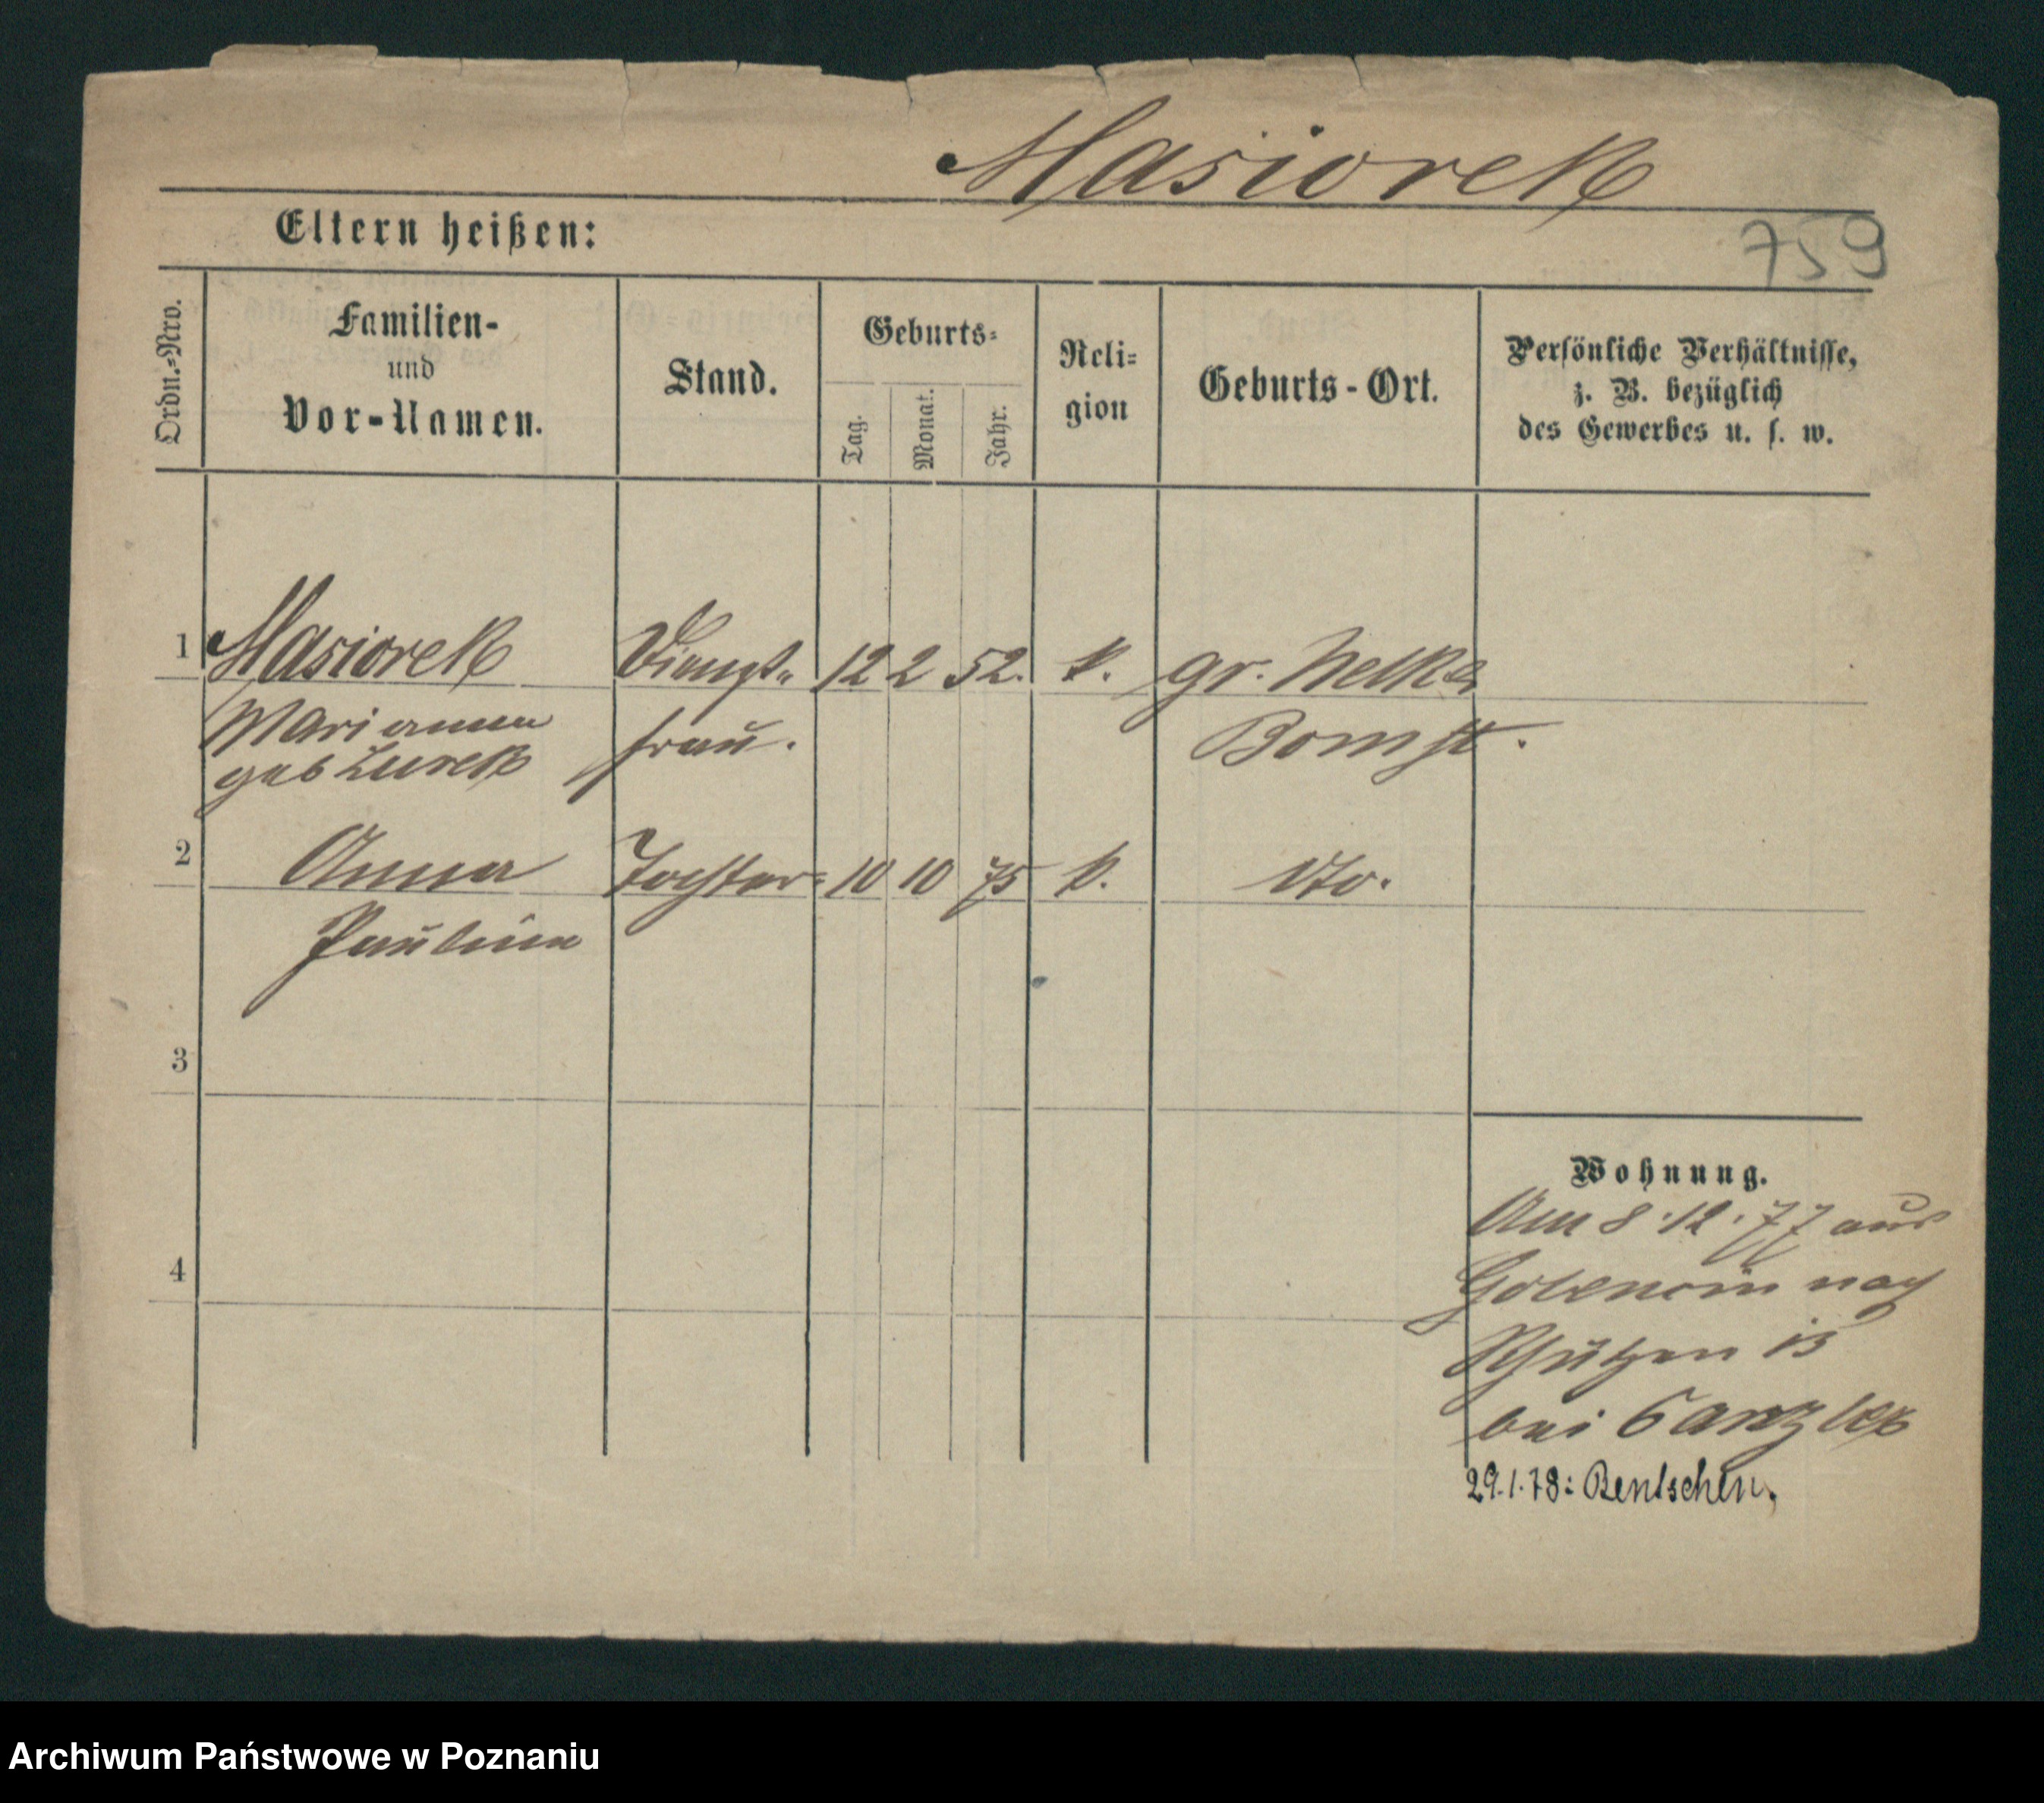 Masiorek
Eltern heißen:
759
Ordn.-Nro.
Familien-
und
Vor-Namen.
Stand.
Geburts-
Tag.
Monat.
Jahr.
Reli-
gion
Geburts-Ort.
Persönliche Verhältnisse,
z. B. bezüglich
des Gewerbes u. s. w.
1 Masiorek Dienst- 12 2 52. k. gr. Nelke
Marianna frau. Bomst.
geb Zurek
2 Anna Tochter 10 10 75 k. dto.
Paulina
3
4
Wohnung.
Am 8.12.77 aus
nach
Schützen 13
bei
29.1.78: Bentschen.
Archiwum Państwowe w Poznaniu